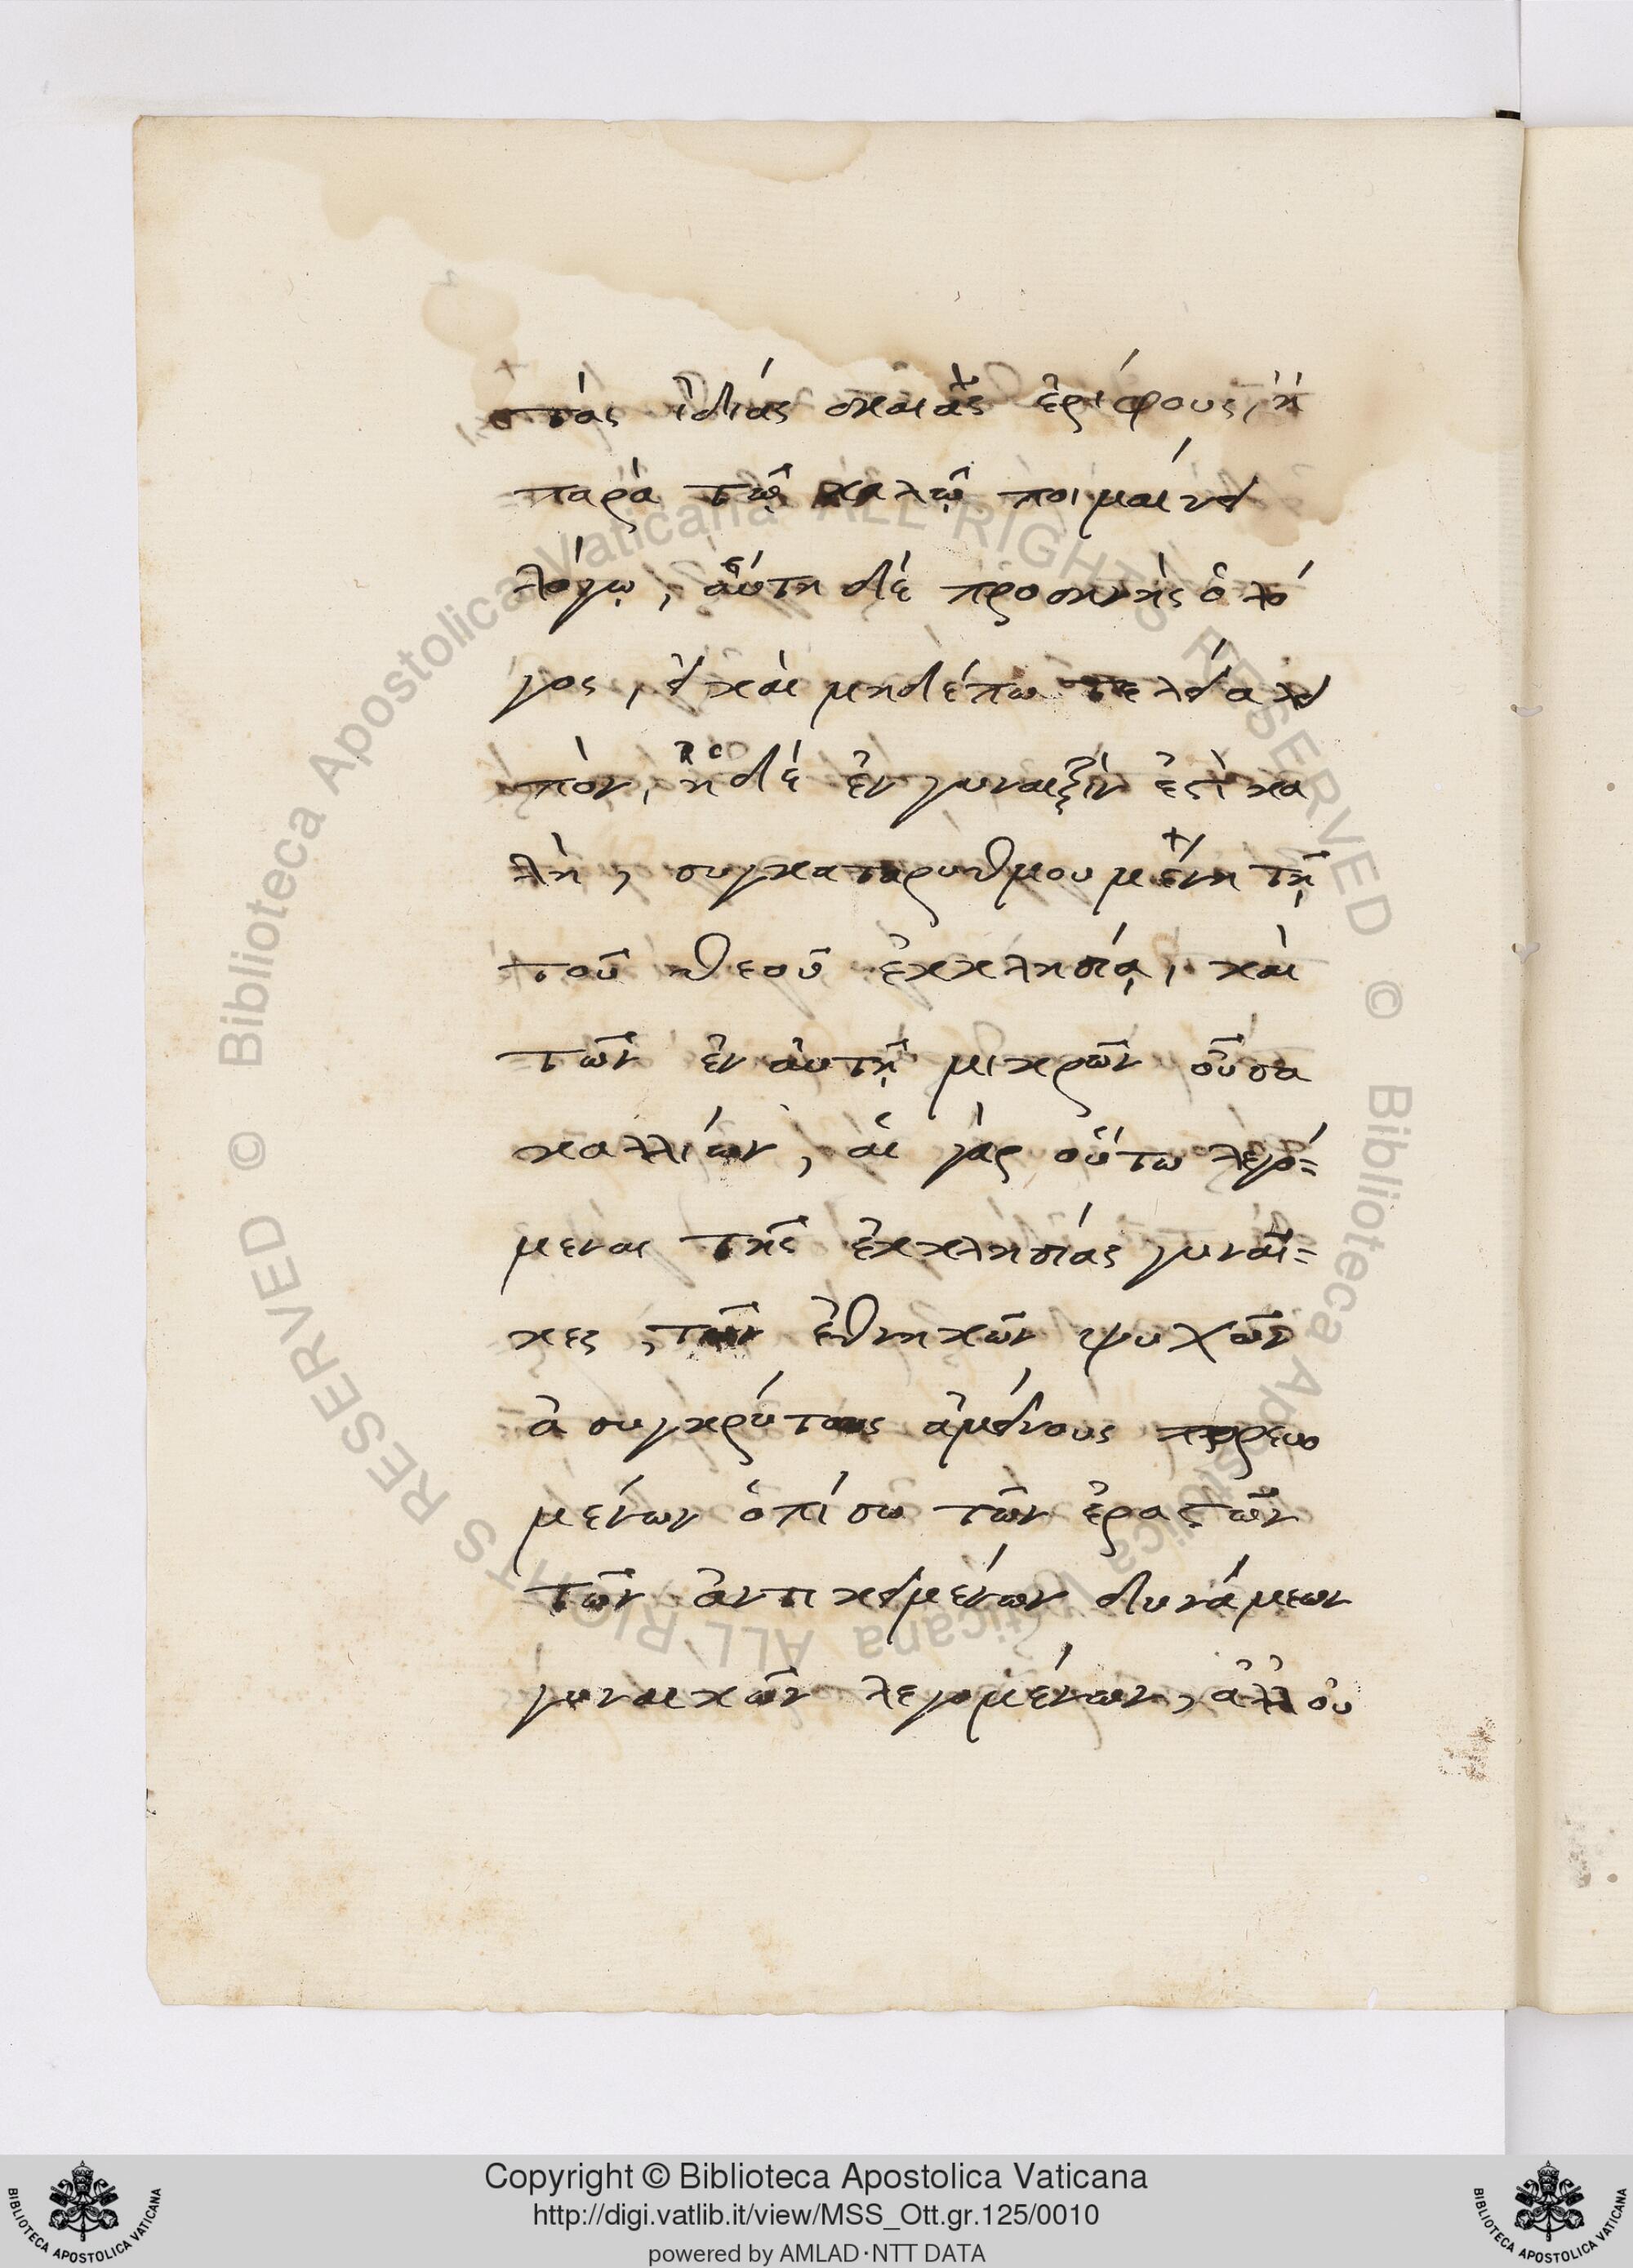 τὰς ἰδίας σκιὰς ἐρίφους, ἢ
παρὰ τῷ καλῷ ποιμαίνει
λόγῳ, αὕτη δὲ προσηνὴς ὁ λό
γος, εἰ καὶ μηδέπω τελεία λει
πὸν, ἡ δὲ ἐν γυναιξίν ἐστι κα
λὴ, συγκαταρυθμουμένη τῇ
τοῦ θεοῦ ἐκκλησίᾳ, καὶ
τῶν ἐν αὐτῇ μικρῶν οὖσα
καλλίων, αἱ γὰρ οὕτω λεγό=
μεναι τῆς ἐκκλησίας γυναῖ=
κες, τῶν ἐθνηκῶν ψυχῶν
ἀσυγκρύτους ἀμείνους πορευο
μένων ὀπίσω τῶν ἐραστῶν
τῶν ἀντικειμένων δυνάμεων
γυναικῶν λεγομένων, ἀλλ οὐ
Copyright © Biblioteca Apostolica Vaticana
http://digi.vatlib.it/view/MSS_Ott.gr.125/0010
powered by AMLAD·NTT DATA
BIBLIOTECA APOSTOLICA VATICANA
BIBLIOTECA APOSTOLICA VATICANA
© Biblioteca Apostolica Vaticana ALL RIGHTS RESERVED © Biblioteca Apostolica Vaticana ALL RIGHTS RESERVED